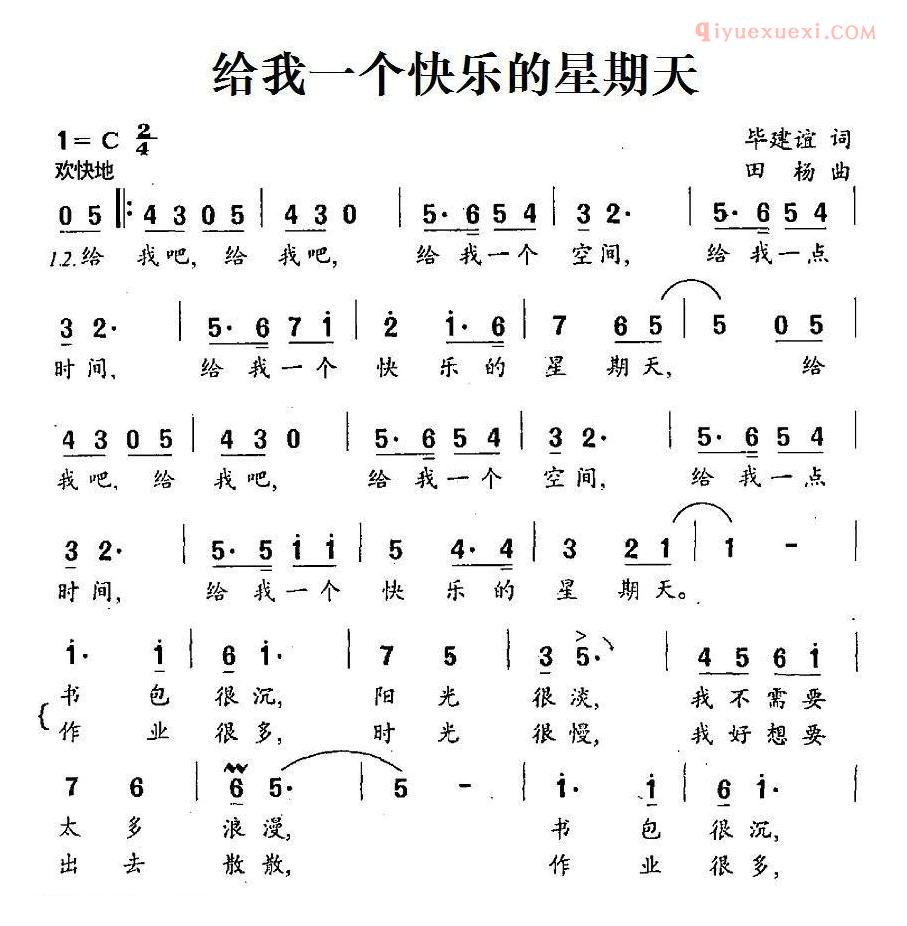 qiyuexuexi.com
给我一个快乐的星期天
1=C 2/4
毕建谊 词
欢快地
田 杨 曲
0 5 |: 4 3 0 5 | 4 3 0 | 5· 6 5 4 | 3 2· | 5· 6 5 4
1.2.给 我吧, 给 我吧, 给 我一个 空间, 给 我一点
3 2· | 5· 6 7 i | 2̇ i· 6 | 7 6 5 | 5 0 5
时间, 给 我一个 快 乐的 星 期天, 给
4 3 0 5 | 4 3 0 | 5· 6 5 4 | 3 2· | 5· 6 5 4
我吧, 给 我吧, 给 我一个 空间, 给 我一点
3 2· | 5· 5 i i | 5 4· 4 | 3 2 1 | 1 -
时间, 给 我一个 快 乐的 星 期天。
i· i | 6 i· | 7 5 | 3 5· | 4 5 6 i
书 包 很沉, 阳 光 很淡, 我不需要
作 业 很多, 时 光 很慢, 我好想要
7 6 | 6 5· | 5 - | i· i | 6 i·
太 多 浪漫, 书 包 很沉,
出 去 散散, 作 业 很多,